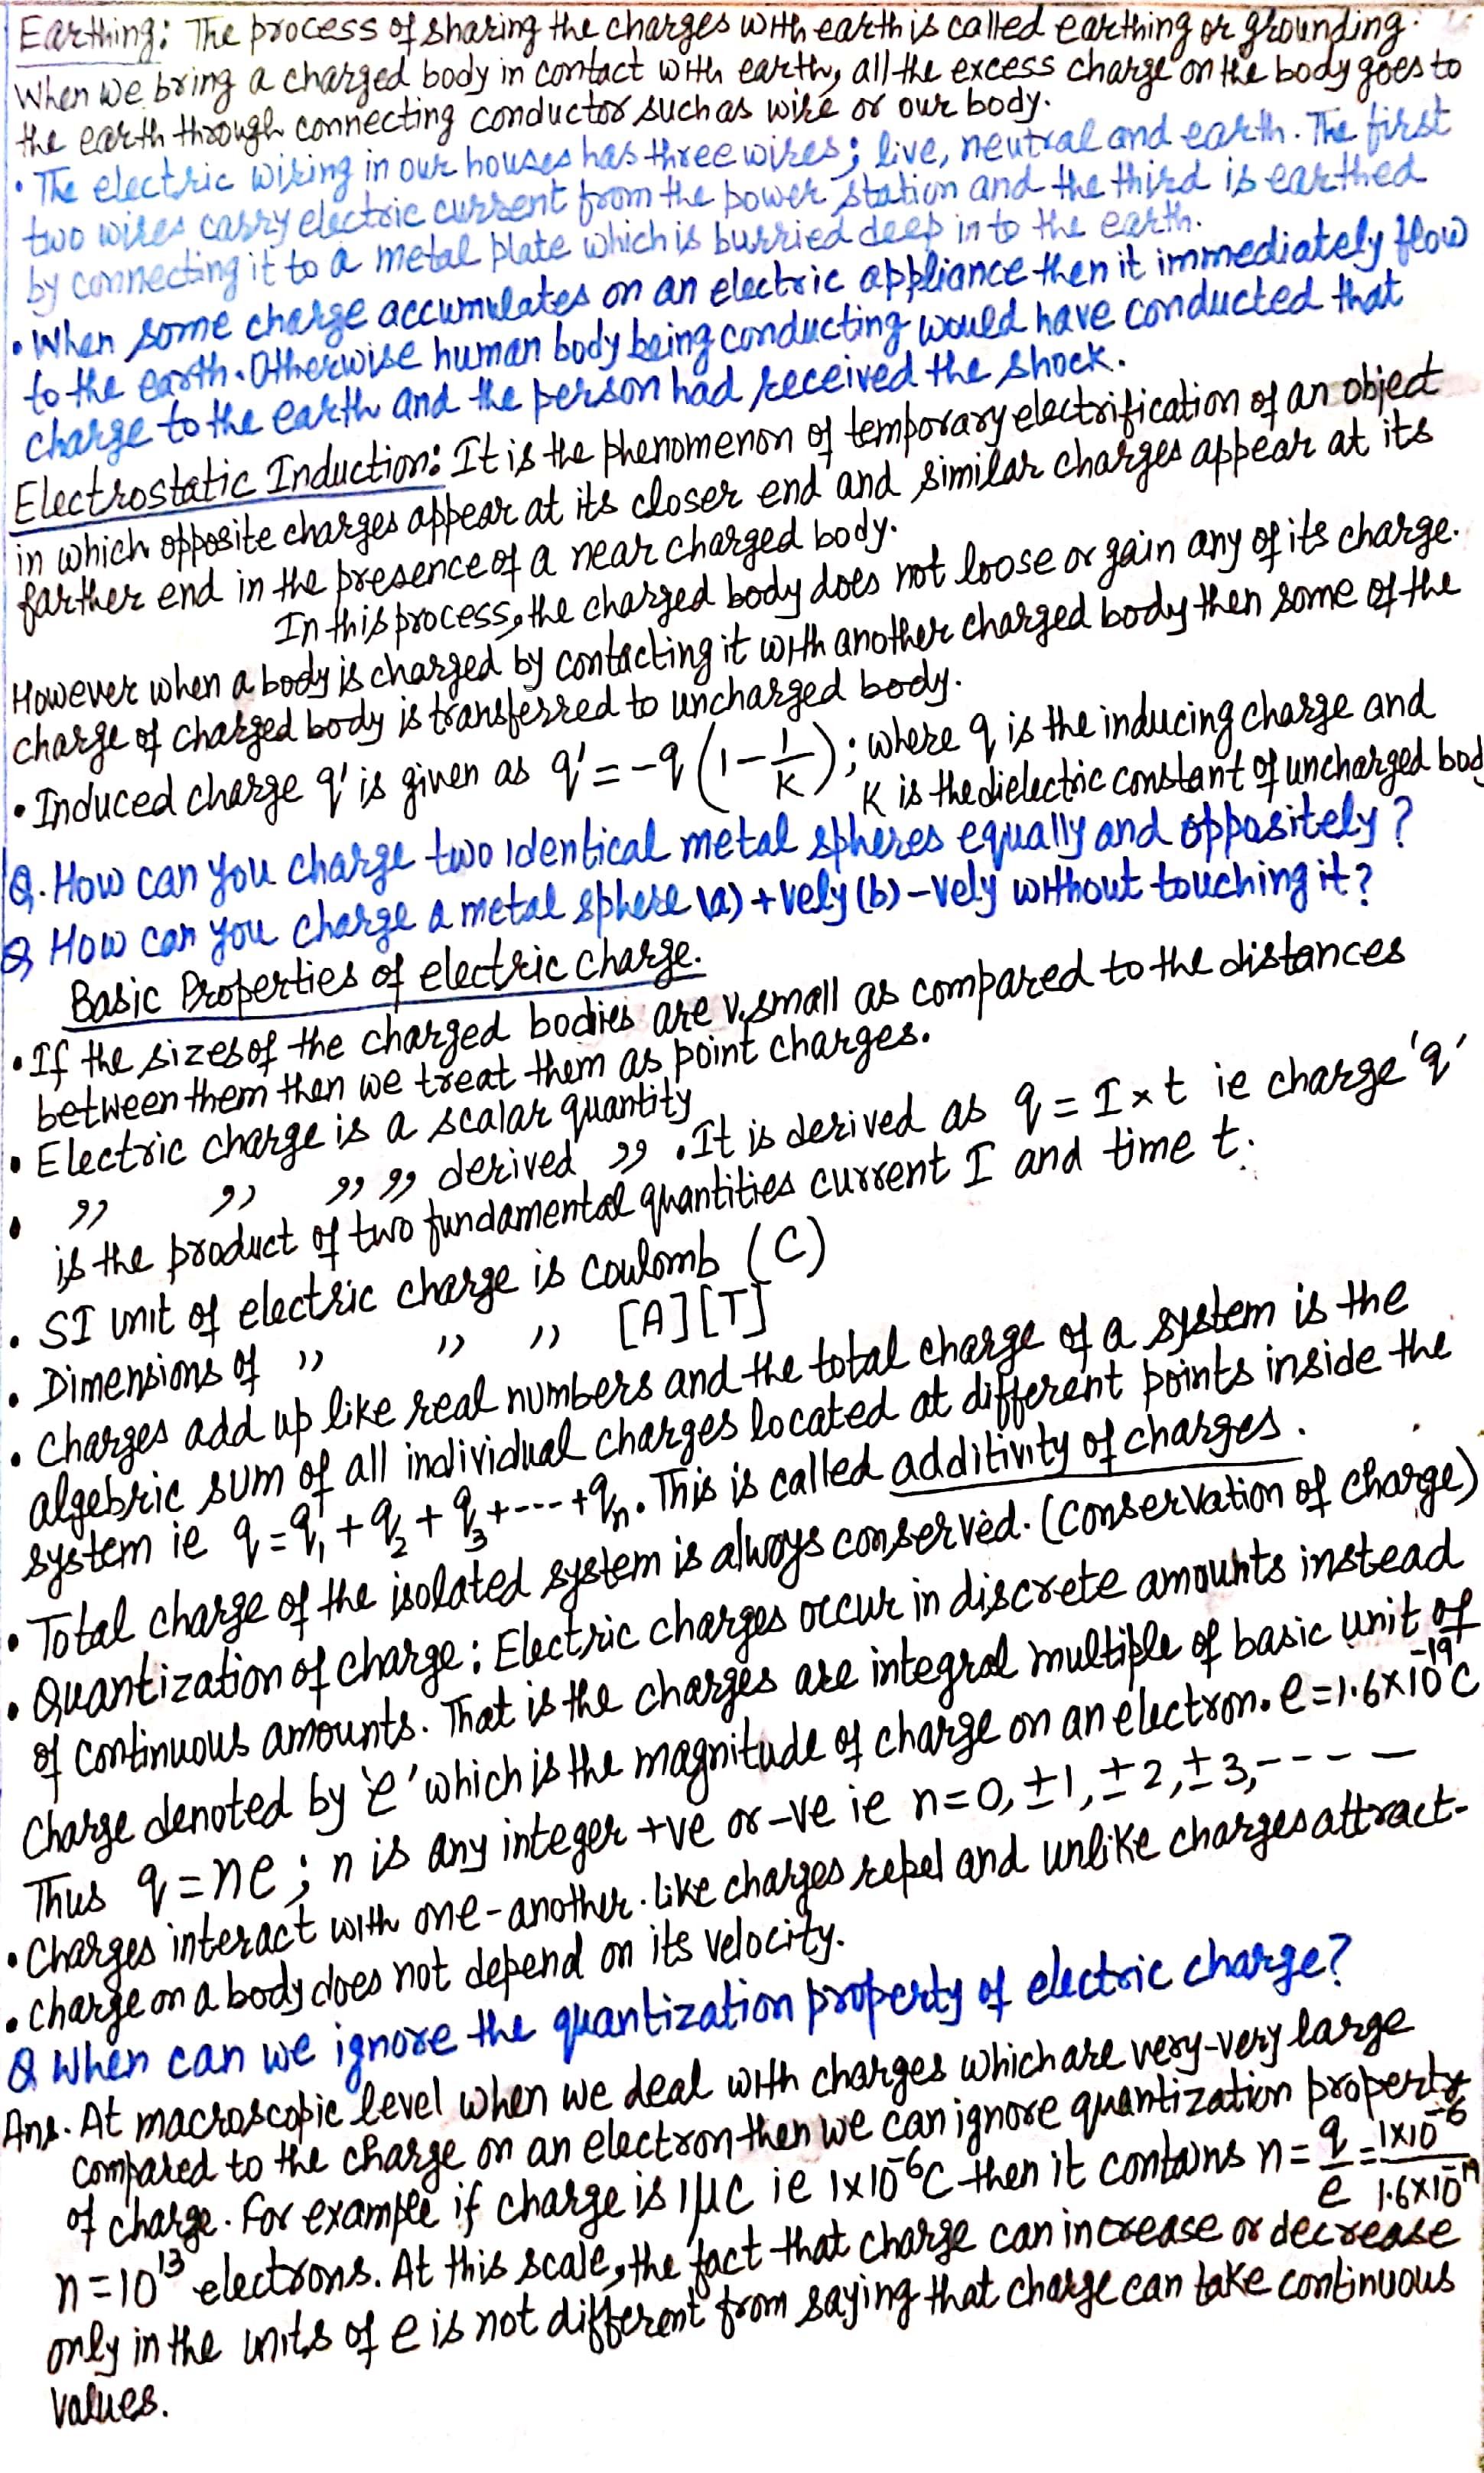 Earthing: The process of sharing the charges with earth is called earthing or grounding.
When we bring a charged body in contact with earth, all the excess charge on the body goes to
the earth through connecting conductor such as wire or our body.
• The electric wiring in our houses has three wires; live, neutral and earth. The first
two wires carry electric current from the power station and the third is earthed
by connecting it to a metal plate which is burried deep in to the earth.
• When some charge accumulates on an electric appliance then it immediately flow
to the earth. Otherwise human body being conducting would have conducted that
charge to the earth and the person had received the shock.
Electrostatic Induction: It is the phenomenon of temporary electrification of an object
in which opposite charges appear at its closer end and similar charges appear at its
farther end in the presence of a near charged body.
In this process, the charged body does not loose or gain any of its charge.
However when a body is charged by contacting it with another charged body then some of the
charge of charged body is transferred to uncharged body.
• Induced charge q' is given as q' = -q (1 - 1/K); where q is the inducing charge and
K is the dielectric constant of uncharged bod
Q. How can you charge two identical metal spheres equally and oppositely?
Q How can you charge a metal sphere (a) +vely (b) -vely without touching it?
Basic Properties of electric charge.
• If the sizes of the charged bodies are v. small as compared to the distances
between them then we treat them as point charges.
• Electric charge is a scalar quantity
• ,, ,, ,, ,, derived ,, . It is derived as q = I × t ie charge 'q'
is the product of two fundamental quantities current I and time t.
• SI unit of electric charge is coulomb (C)
• Dimensions of ,, ,, ,, [A][T]
• Charges add up like real numbers and the total charge of a system is the
algebric sum of all individual charges located at different points inside the
system ie q = q₁ + q₂ + q₃ + ---- + qₙ. This is called additivity of charges.
• Total charge of the isolated system is always conserved. (Conservation of charge)
• Quantization of charge: Electric charges occur in discrete amounts instead
of continuous amounts. That is the charges are integral multiple of basic unit of
charge denoted by 'e' which is the magnitude of charge on an electron. e = 1.6×10⁻¹⁹C
Thus q = ne; n is any integer +ve or -ve ie n = 0, ±1, ±2, ±3, ----
• Charges interact with one-another. Like charges repel and unlike charges attract.
• Charge on a body does not depend on its velocity.
Q When can we ignore the quantization property of electric charge?
Ans. At macroscopic level when we deal with charges which are very-very large
compared to the charge on an electron then we can ignore quantization property
of charge. For example if charge is 1μC ie 1×10⁻⁶C then it contains n = q/e = 1×10⁻⁶/1.6×10⁻¹⁹
n = 10¹³ electrons. At this scale, the fact that charge can increase or decrease
only in the units of e is not different from saying that charge can take continuous
values.